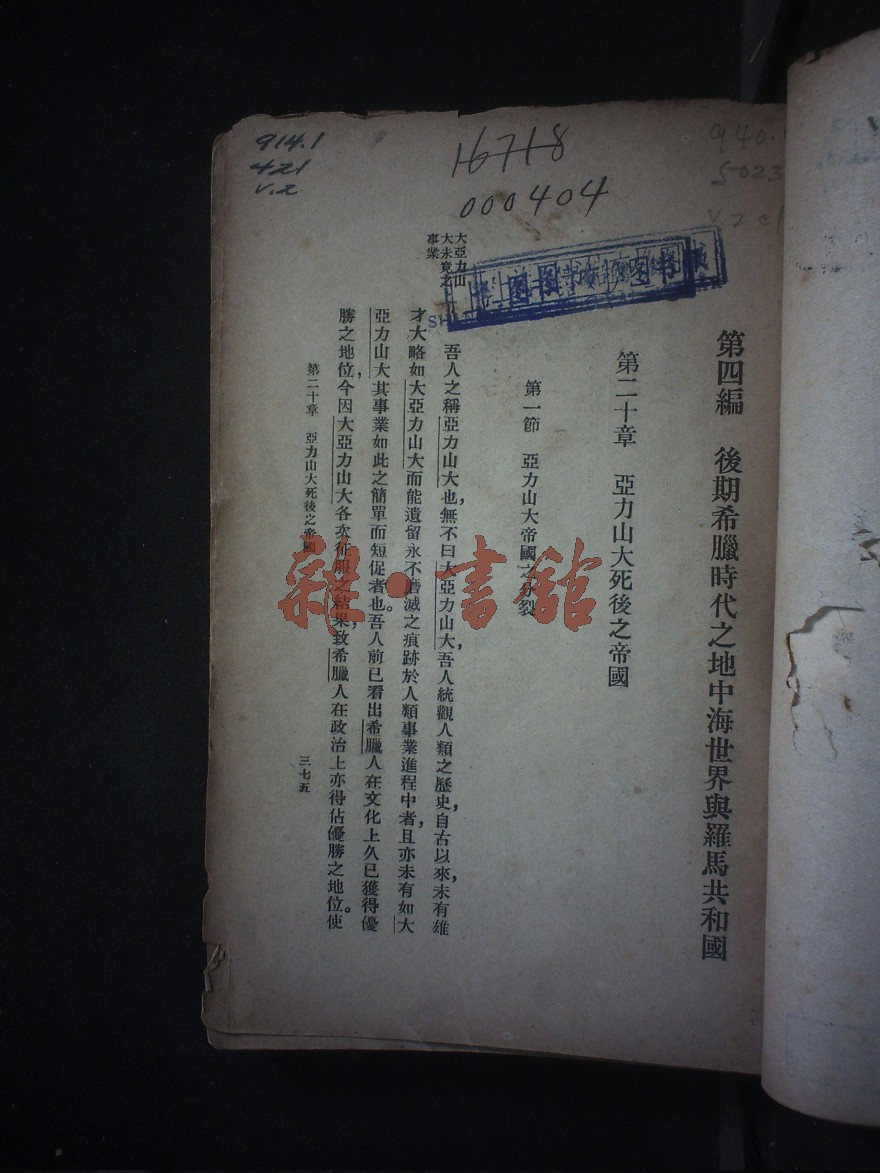 914.1
421
v.2
16718
000404
940.
5023
第四編　後期希臘時代之地中海世界與羅馬共和國
第二十章　亞力山大死後之帝國
第一節　亞力山大帝國之分裂
大亞力山
大未竟之
事業
吾人之稱亞力山大也，無不曰大亞力山大，吾人統觀人類之歷史，自古以來，未有雄
才大略如大亞力山大而能遺留永不磨滅之痕跡於人類事業進程中者，且亦未有如大
亞力山大其事業如此之簡單而短促者也。吾人前已看出希臘人在文化上久已獲得優
勝之地位，今因大亞力山大各次征服之結果，致希臘人在政治上亦得佔優勝之地位。使
第二十章　亞力山大死後之帝國
三七五
雜·書館